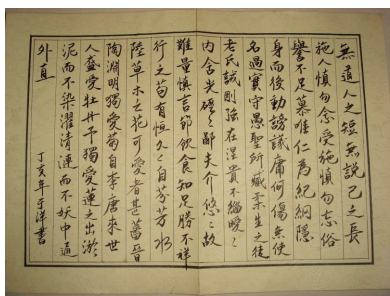 無道人之短無說己之長
施人慎勿念受施慎勿忘俗
譽不足慕唯仁為紀綱隱
身而後動謗議庸何傷無使
名過實守愚聖所臧柔生之徒
老氏誡剛強在涅貴不緇曖々
内含光硜々鄙夫介悠々故
難量慎言節飲食知足勝不祥
行之苟有恒久々自芬芳水
陸草木之花可愛者甚蕃晉
陶淵明獨愛菊自李唐來世
人盛愛牡丹予獨愛蓮之出淤
泥而不染濯清漣而不妖中通
外直 丁亥年于洋書